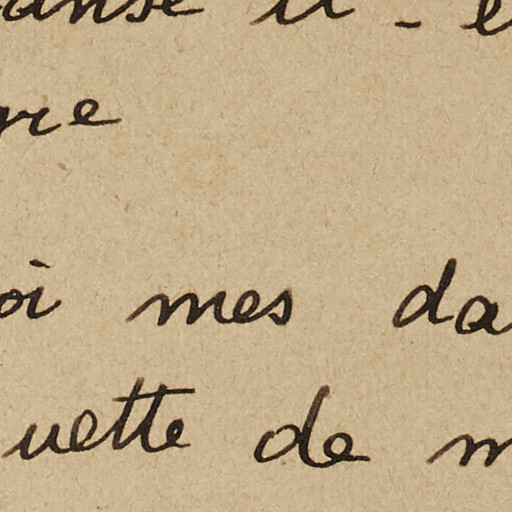 anse il - e
gre
oi mes da
uette de m